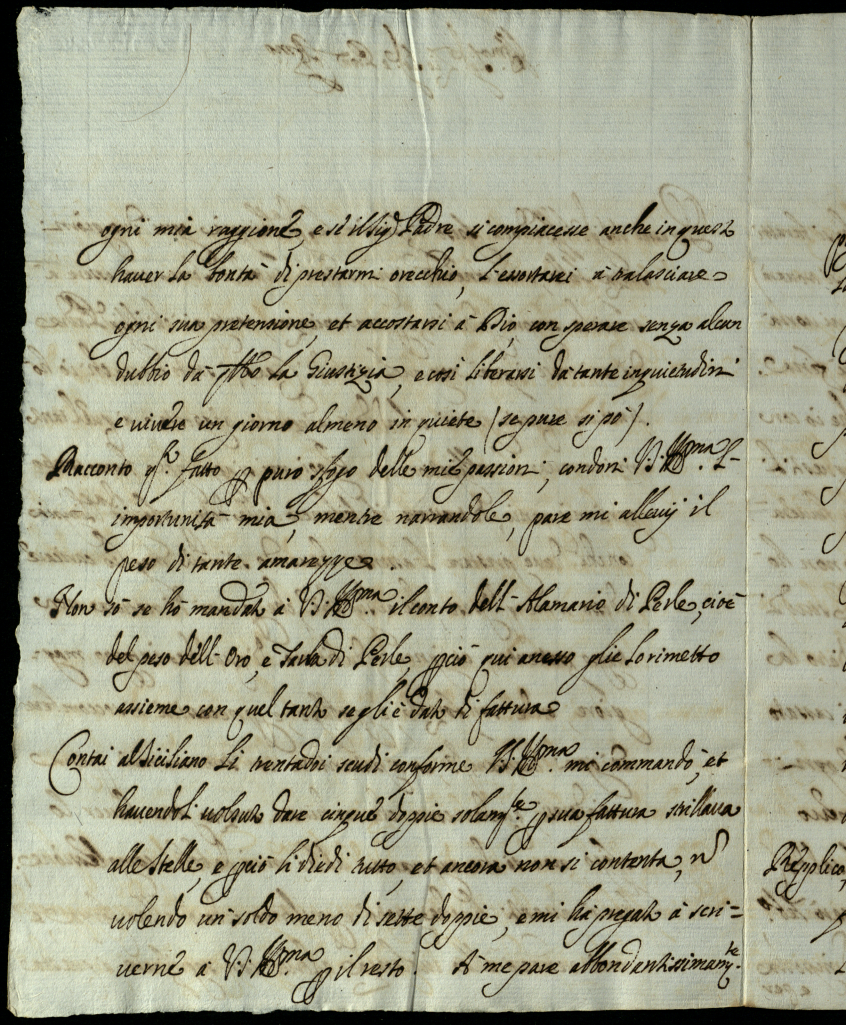 ogni mia raggione, e se il Sig.r Padre si compiacesse anche in questo
haver la bontà di prestarmi orecchio, l'essortarei à tralasciare
ogni sua pretensione, et accostarsi à Dio, con sperare senza alcun
dubbio da la Giustizia, e così liberarsi da tante inquietudini
e vivere un giorno almeno in quiete (se pure si pò).
Racconto q.o fatto p puro sfogo delle mie passioni, condoni V.S. Ill.ma l'
importunità mia, mentre narrandole, pare mi allevij il
peso di tante amarezze
Non sò se hò mandato à V.S. Ill.ma il conto dell'Alamario di Perle, cioè
del peso dell'Oro, e Tara di Perle, pciò qui anesso glie lo rimetto
assieme con quel tanto se gli è dato di fattura
Contai al Siciliano li trentadoi scudi conforme V.S. Ill.ma mi commandò, et
havendoli volsuto dare cinque doppie solam.te p sua fattura strillava
alle stelle, e pciò li diedi tutto, et ancora non si contenta, nõ
volendo un soldo meno di sette doppie, e mi hà pregato à scri=
verne à V.S. Ill.ma p il resto. A me pare abbondantissimam.te
Repplico,